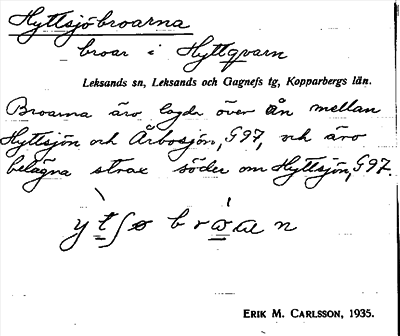 Hyttsjöbroarna
broar i Hyttqvarn
Leksands sn, Leksands och Gagnefs tg, Kopparbergs län.
Broarna äro lagda över ån mellan
Hyttsjön och Årbosjön, G97, och äro
belägna strax söder om Hyttsjön, G97.
ytʃø brωωan
ERIK M. CARLSSON, 1935.